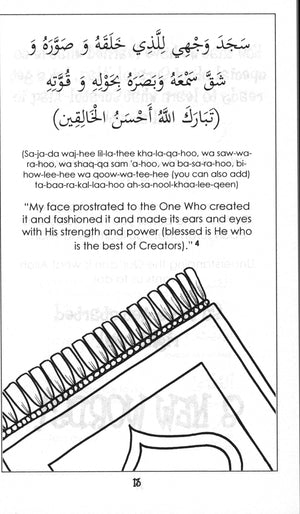 سَجَدَ وَجْهِي لِلَّذِي خَلَقَهُ وَ صَوَّرَهُ وَ
شَقَّ سَمْعَهُ وَبَصَرَهُ بِحَوْلِهِ وَ قُوَّتِهِ
(تَبَارَكَ اللَّهُ أَحْسَنُ الْخَالِقِين)
(Sa-ja-da waj-hee lil-la-thee kha-la-qa-hoo, wa saw-wa-
ra-hoo, wa shaq-qa sam 'a-hoo, wa ba-sa-ra-hoo, bi-
how-lee-hee wa qoow-wa-tee-hee (you can also add)
ta-baa-ra-kal-laa-hoo ah-sa-nool-khaa-lee-qeen)
"My face prostrated to the One Who created
it and fashioned it and made its ears and eyes
with His strength and power (blessed is He who
is the best of Creators)." 4